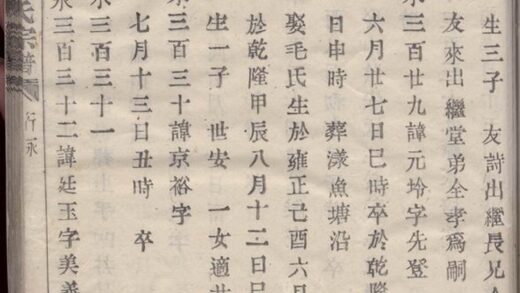 生三子 友詩出繼長兄
友來出繼堂弟全孝爲嗣
三百廿九諱元坽字先登
六月廿七日巳時卒於乾隆
日申時 葬漾魚塘沿
娶毛氏生於雍正己酉六月
於乾隆甲辰八月十二日巳
生一子 世安 一女適
三百三十諱京裕字
七月十三日丑時 卒
永三百三十一
三百三十二諱廷玉字美義
行永
氏宗譜